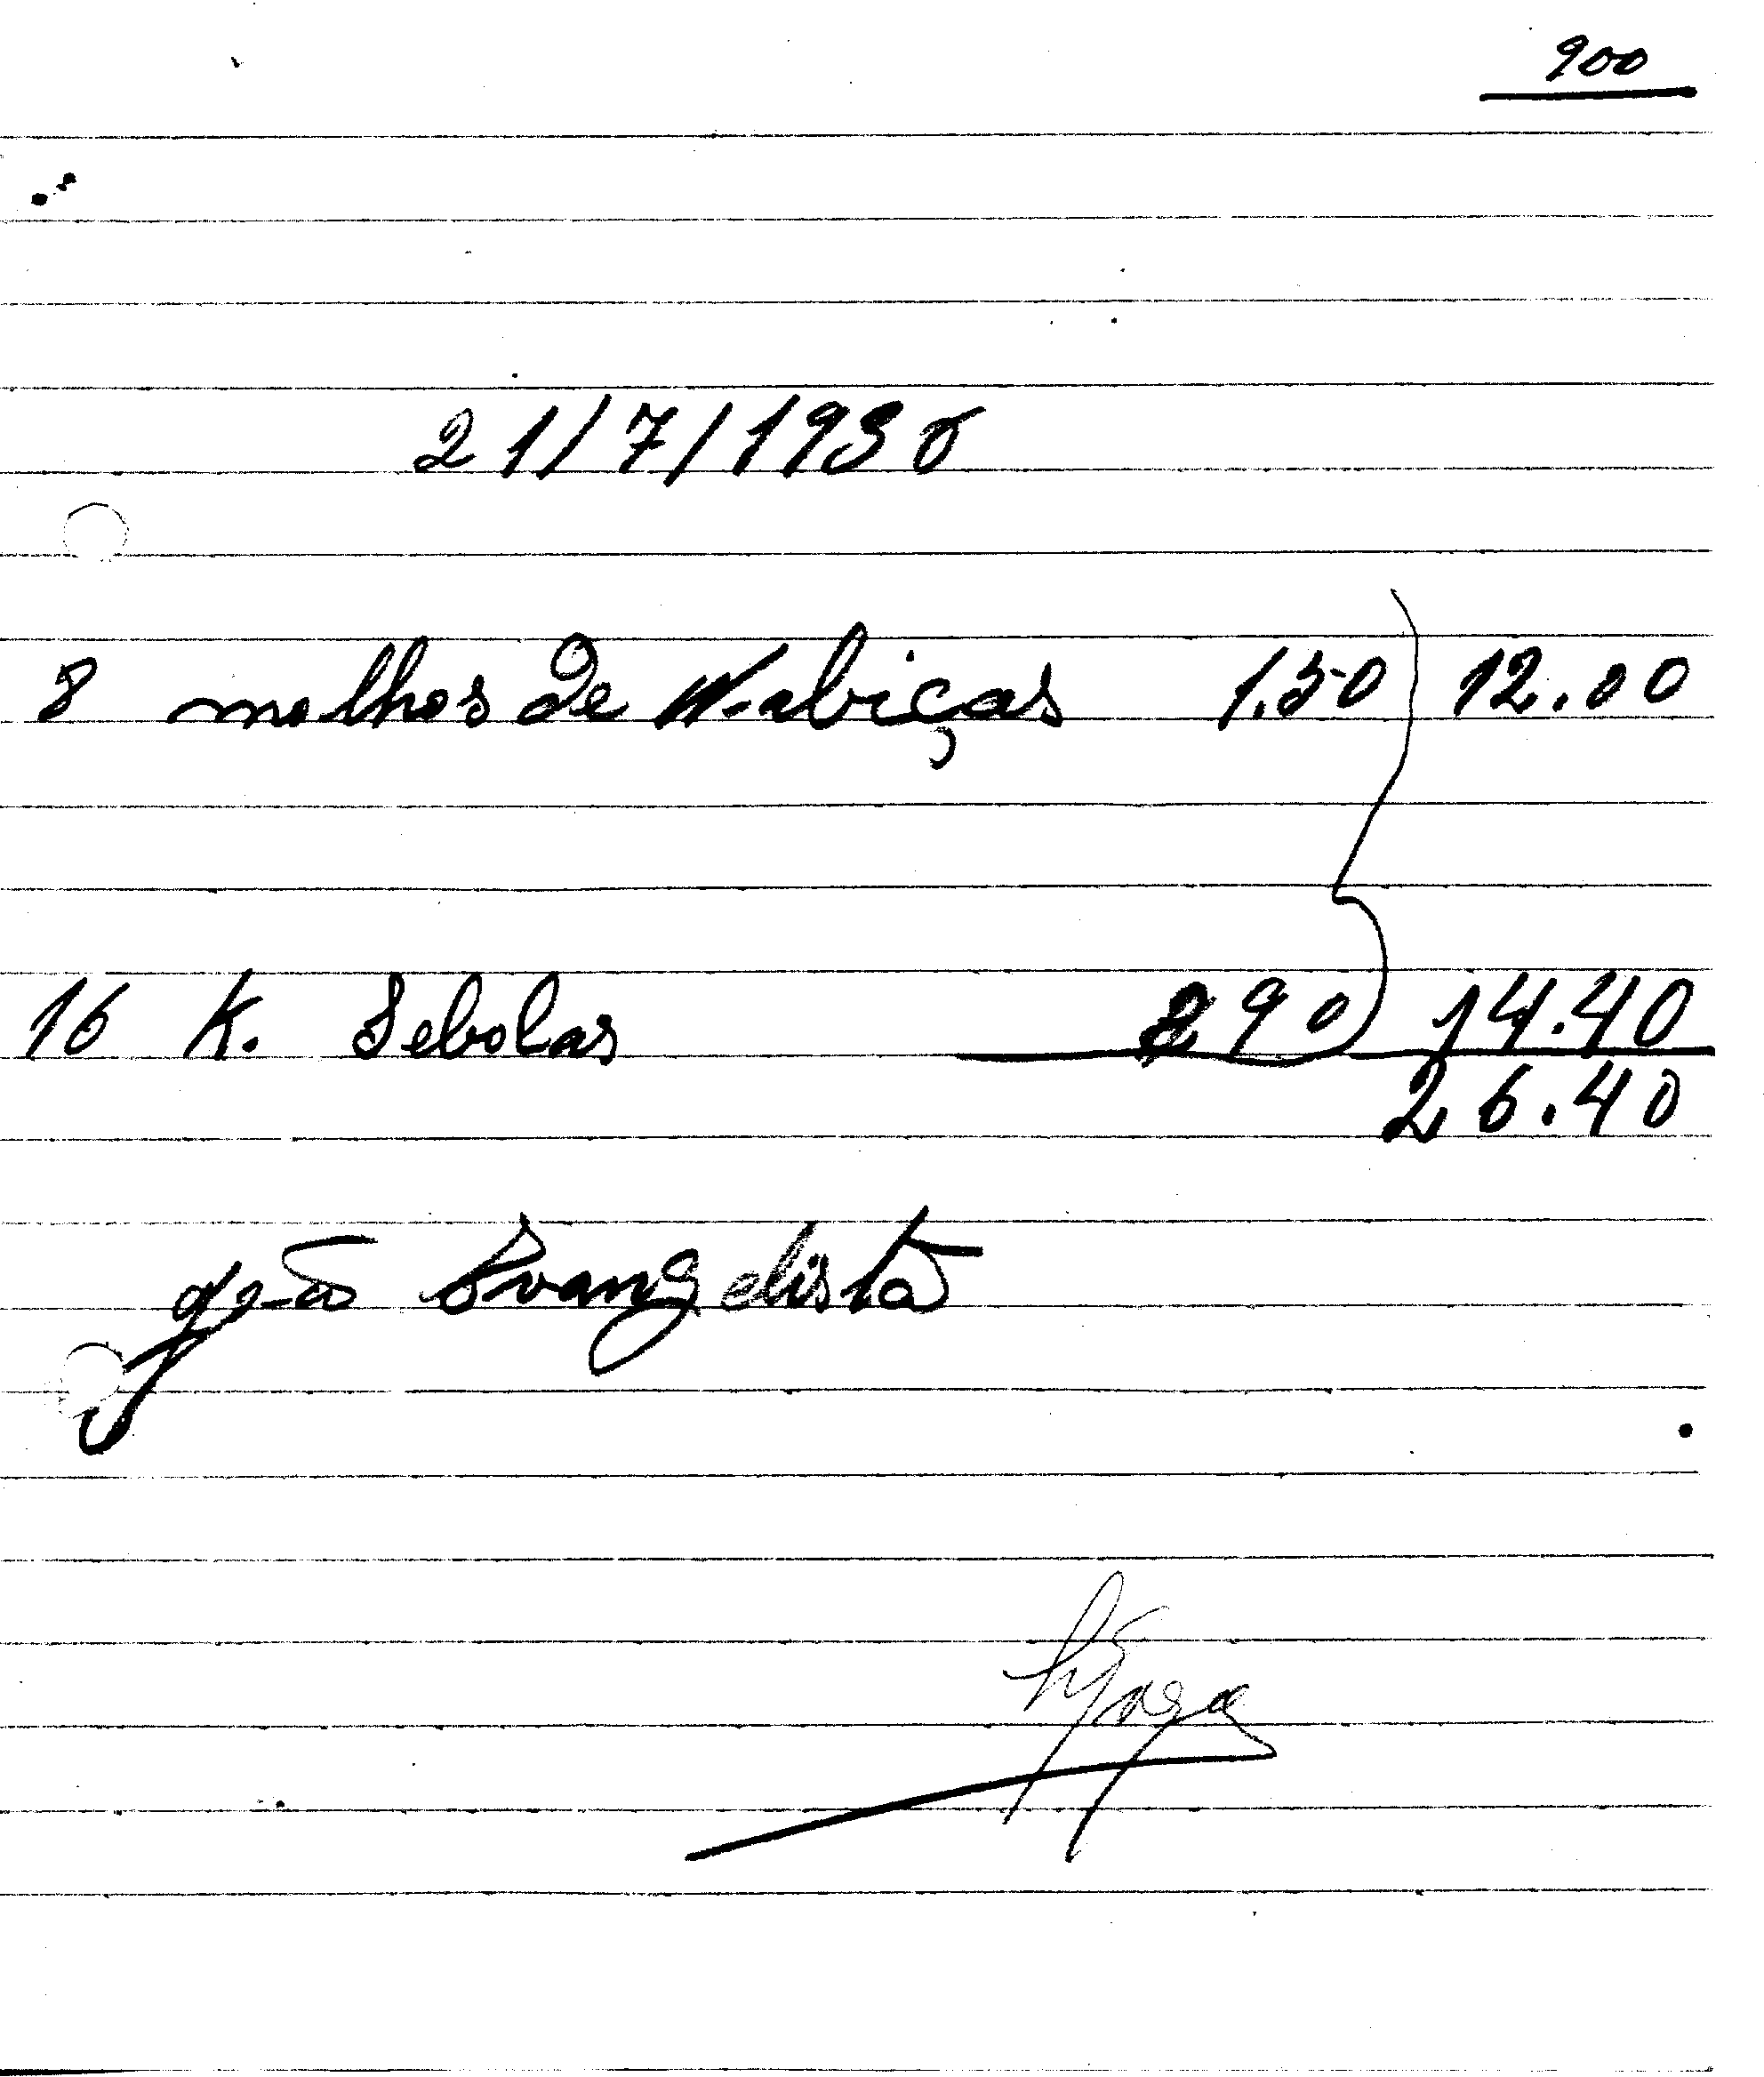 900
21/7/1936
8 molhos de Nabiças 1.50 12.00
16 K. Sebolas 90 14.40
26.40
João Evangelista